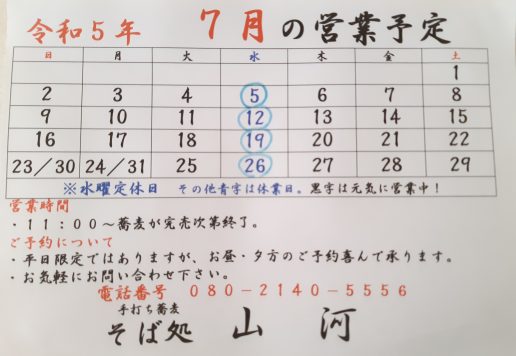 令和5年 7月の営業予定
日 月 火 水 木 金 土
1
2 3 4 5 6 7 8
9 10 11 12 13 14 15
16 17 18 19 20 21 22
23/30 24/31 25 26 27 28 29
※水曜定休日 その他青字は休業日。黒字は元気に営業中!
営業時間
・11:00~蕎麦が完売次第終了。
ご予約について
・平日限定ではありますが、お昼・夕方のご予約喜んで承ります。
・お気軽にお問い合わせ下さい。
電話番号 080-2140-5556
手打ち蕎麦
そば処 山河